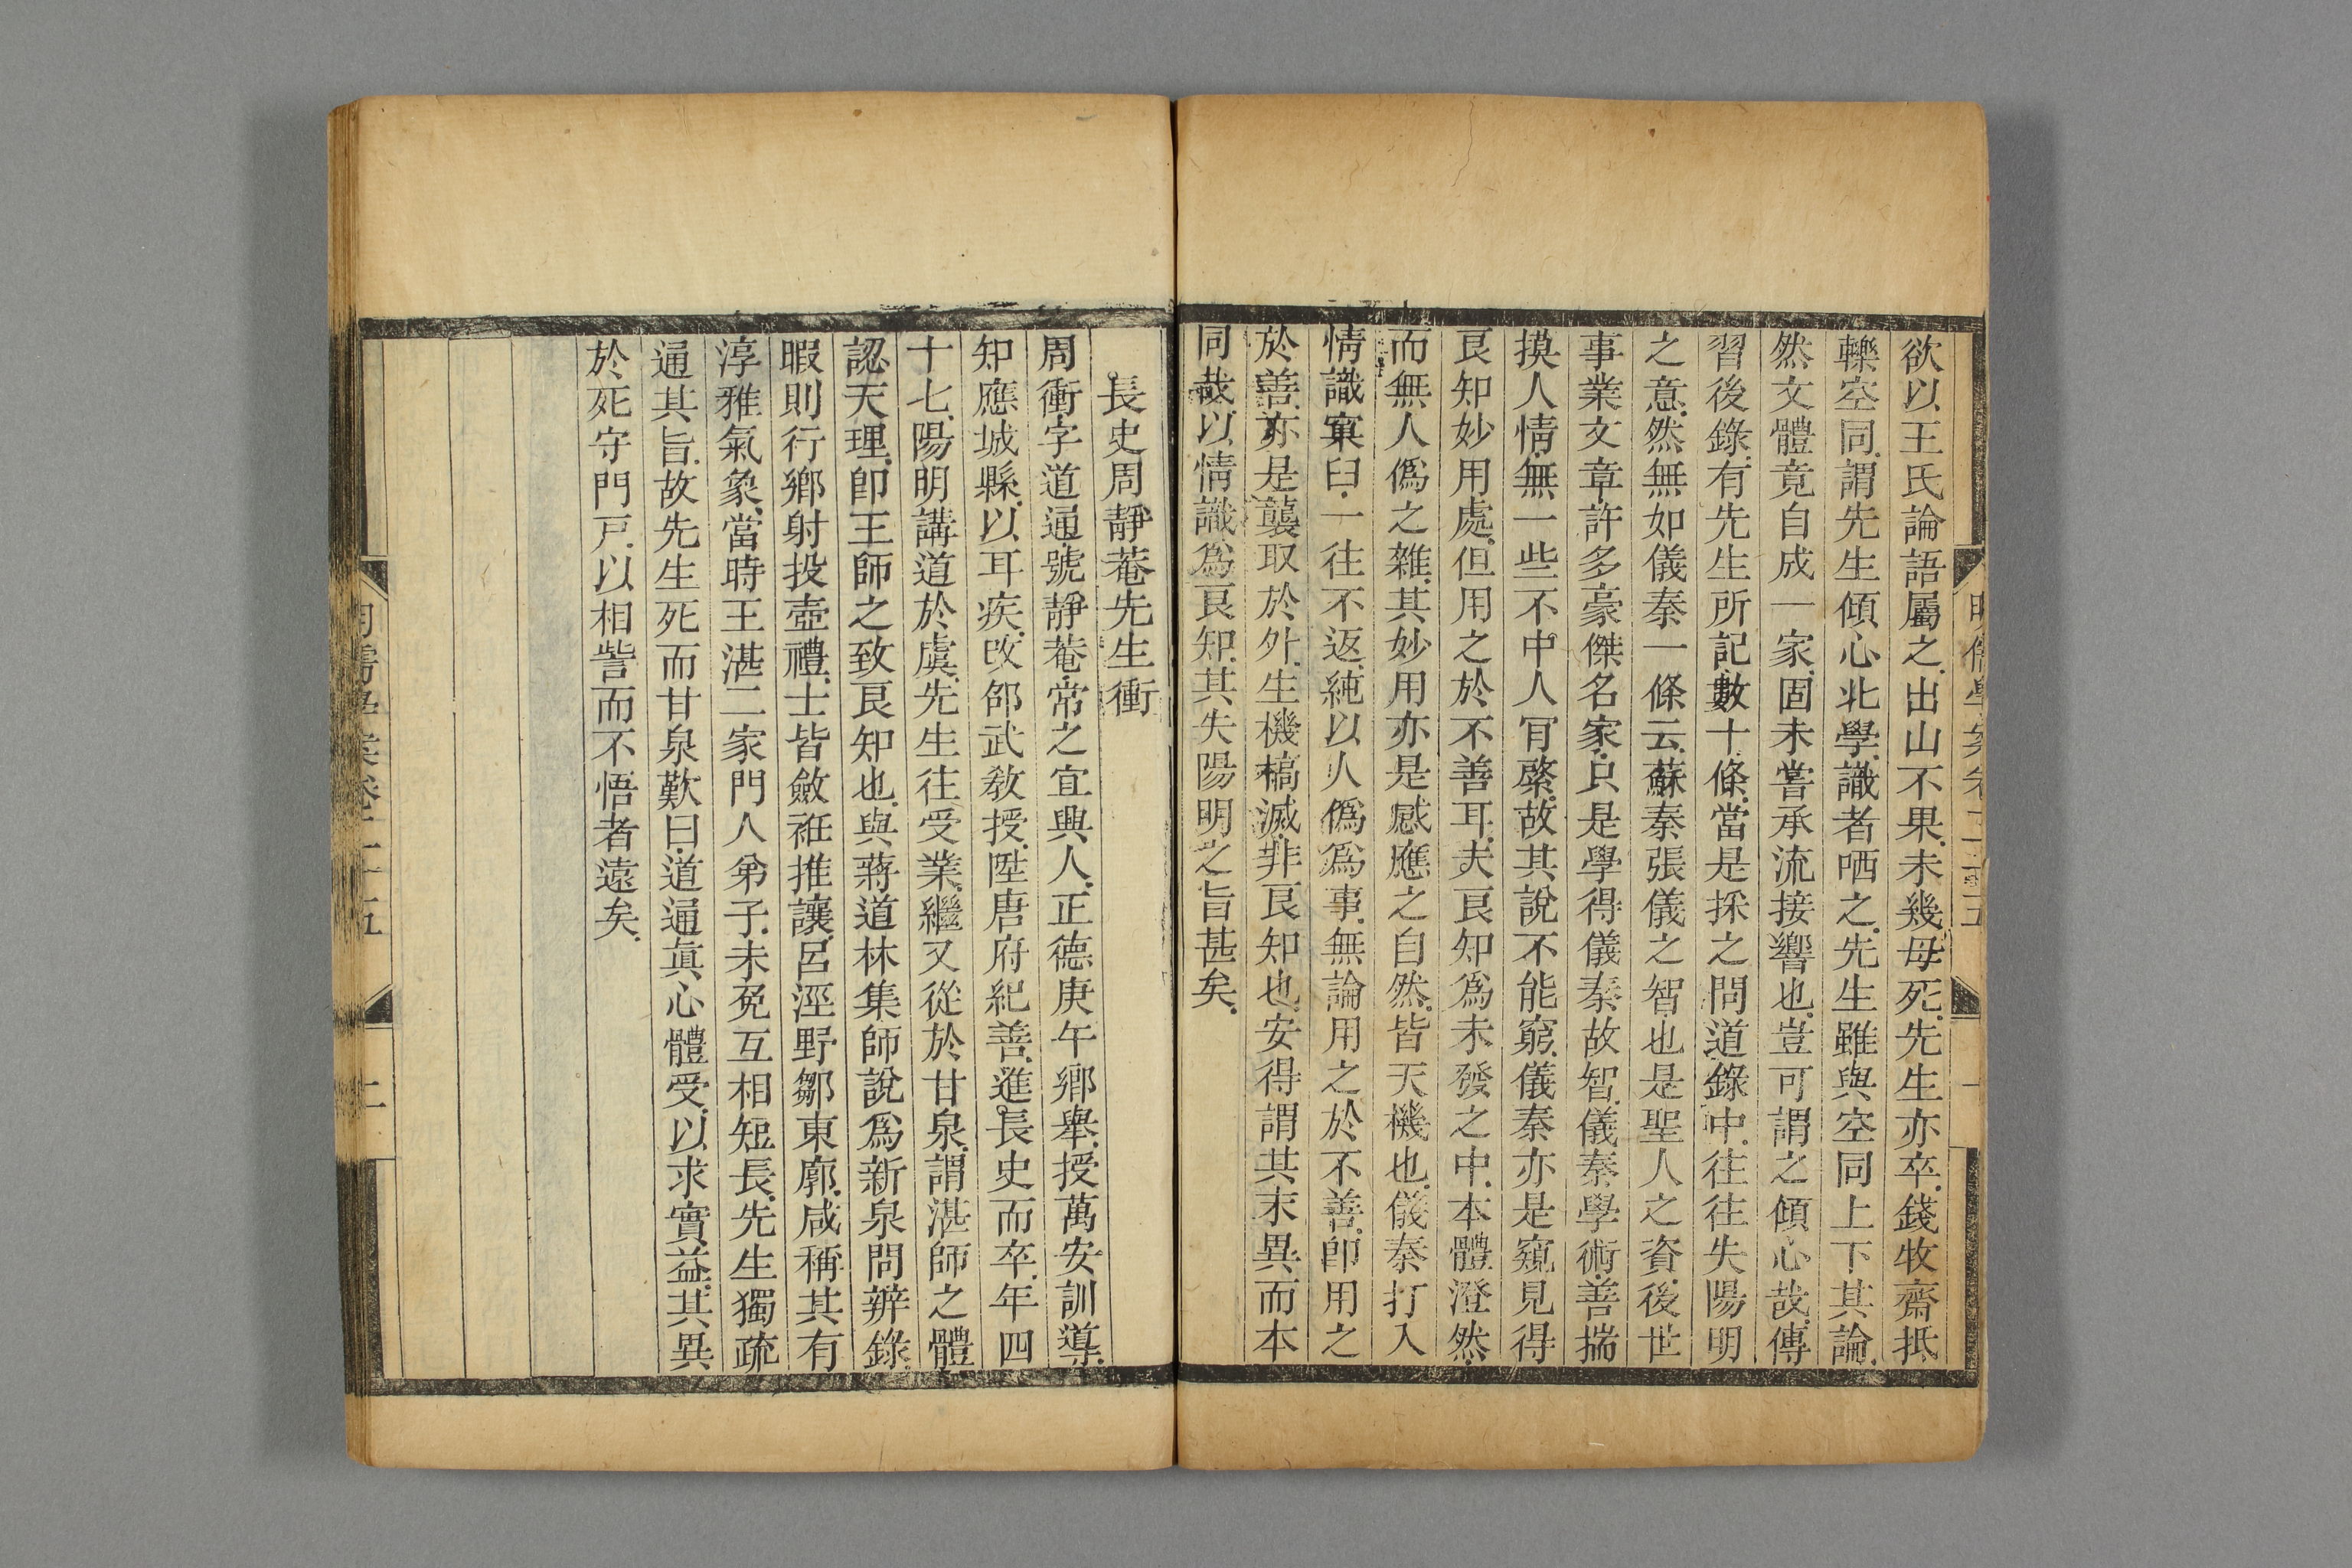 欲以王氏論語屬之.出山不果.未幾母死.先生亦卒.錢牧齋抵
轢空同.謂先生傾心北學.識者哂之.先生雖與空同上下其論.
然文體竟自成一家.固未嘗承流接響也.豈可謂之傾心哉.傳
習後錄.有先生所記數十條.當是採之問道錄中.往往失陽明
之意.然無如儀秦一條云.蘇秦張儀之智也是聖人之資.後世
事業文章許多豪傑名家.只是學得儀秦故智.儀秦學術.善揣
摸人情.無一些不中人肎綮.故其說不能窮.儀秦亦是窺見得
良知妙用處.但用之於不善耳.夫良知爲未發之中.本體澄然.
而無人僞之雜.其妙用亦是感應之自然.皆天機也.儀秦打入
情識窠臼.一往不返.純以人僞爲事.無論用之於不善.卽用之
於善.亦是襲取於外.生機槁滅.非良知也.安得謂其末異而本
同哉.以情識爲良知.其失陽明之旨甚矣.
明儒學案卷二十五 一
長史周靜菴先生衝
周衝字道通號靜菴.常之宜興人.正德庚午鄉舉.授萬安訓導.
知應城縣.以耳疾.改邵武敎授.陞唐府紀善.進長史而卒.年四
十七.陽明講道於虔.先生往受業.繼又從於甘泉.謂湛師之體
認天理.卽王師之致良知也.與蔣道林集師說爲新泉問辨錄.
暇則行鄉射投壺禮.士皆斂袵推讓.呂涇野鄒東廓.咸稱其有
淳雅氣象.當時王湛二家門人弟子.未免互相短長.先生獨疏
通其旨.故先生死而甘泉歎曰.道通眞心體受.以求實益.其異
於死守門戸.以相訾而不悟者遠矣.
明儒學案卷二十五